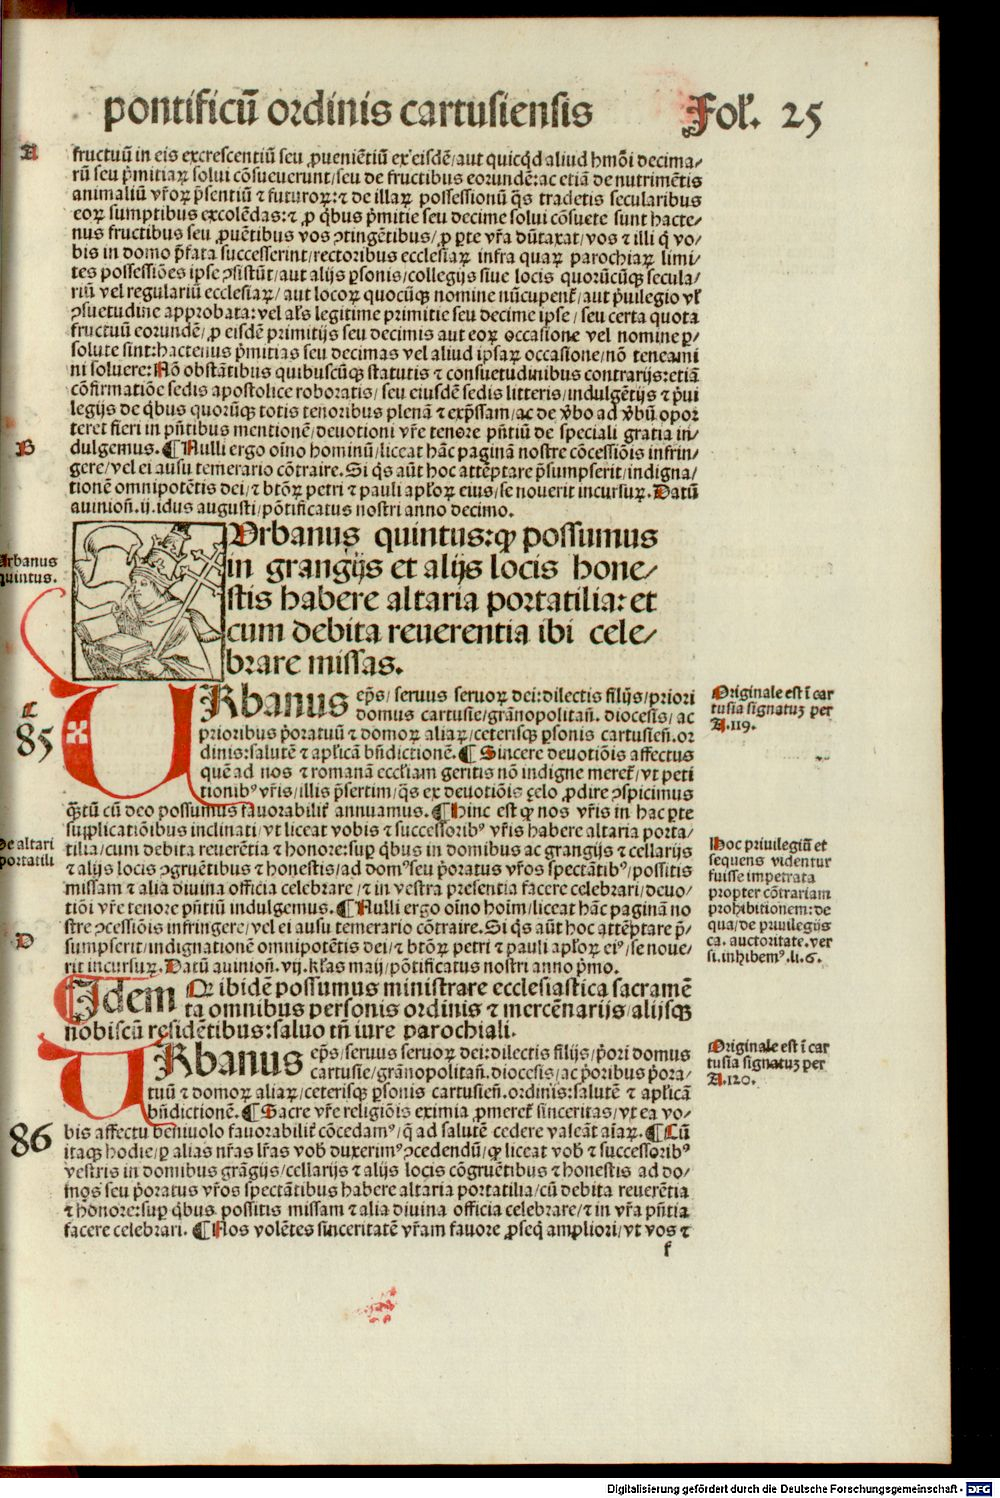 pontificū ordinis cartusiensis Fol'. 25
A
fructuū in eis excrescentiū seu ꝓueniētiū ex eisdē/aut quicq̄d aliud hmōi decima/
rū seu p̄mitiaꝝ solui cōsueuerunt/seu de fructibus eorundē:ac etiā de nutrimētis
animaliū vr̄oꝝ p̄sentiū ⁊ futuroꝝ:⁊ de illaꝝ possessionū q̄s tradetis secularibus
eoꝝ sumptibus excolēdas:⁊ ꝓ q̄bus p̄mitie seu decime solui cōsuete sunt hacte/
nus fructibus seu ꝓuētibus vos ꝯtingētibus/ꝓ ꝑte vr̄a dūtaxat/vos ⁊ illi q̄ vo/
bis in domo p̄fata successerint/rectoribus ecclesiaꝝ infra quaꝝ parochiaꝝ limi/
tes possessiōes ipse ꝯsistūt/aut alijs ꝑsonis/collegijs siue locis quorūcūqꝫ secula/
riū vel regulariū ecclesiaꝝ/aut locoꝝ quocūqꝫ nomine nūcupent̄/aut p̄uilegio vl̄
ꝯsuetudine approbata:vel al̄s legitime primitie seu decime ipse/seu certa quota
fructuū eorundē/ꝓ eisdē primitijs seu decimis aut eoꝝ occasione vel nomine ꝑ/
solute sint:hactenus p̄mitias seu decimas vel aliud ipsaꝝ occasione/nō teneami
ni soluere:Nō obstātibus quibuscūqꝫ statutis ⁊ consuetudinibus contrarijs:etiā
cōfirmatiōe sedis apostolice roboratis/seu eiusdē sedis litteris/indulgētijs ⁊ p̄ui
legijs de q̄bus quorūqꝫ totis tenoribus plenā ⁊ exp̄ssam/ac de v̄bo ad v̄bū opor
teret fieri in pn̄tibus mentionē/deuotioni vr̄e tenore pn̄tiū de speciali gratia in/
B
dulgemus.¶Nulli ergo oīno hominū/liceat hāc paginā nostre cōcessiōis infrin/
gere/vel ei ausu temerario cōtraire.Si q̄s aūt hoc attēptare p̄sumpserit/indigna/
tionē omnipotētis dei/⁊ btōꝝ petri ⁊ pauli apl̄oꝝ eius/se nouerit incursuꝝ.Datū
auinioñ.ij.idus augusti/pōtificatus nostri anno decimo.
Urbanus
quintus.
Urbanus quintus:ꝙ possumus
in grangijs et alijs locis hone/
stis habere altaria portatilia:et
cum debita reuerentia ibi cele/
brare missas.
C
85
URbanus ep̄s/seruus seruoꝝ dei:dilectis filijs/priori
domus cartusie/grānopolitañ.diocesis/ac
prioribus p̄oratuū ⁊ domoꝝ aliaꝝ/ceterisqꝫ ꝑsonis cartusieñ.or
dinis:salutē ⁊ apl̄icā bn̄dictionē.¶Sincere deuotiōis affectus
quē ad nos ⁊ romanā eccl̄iam geritis nō indigne meret̄/vt peti
tionibꝰ vr̄is/illis p̄sertim/q̄s ex deuotiōis ęelo ꝓdire ꝯspicimus
q̄tū cū deo possumus fauorabilit̄ annuamus.¶Hinc est ꝙ nos vr̄is in hac ꝑte
supplicatiōibus inclinati/vt liceat vobis ⁊ successoribꝰ vr̄is habere altaria porta/
De altari
portatili
tilia/cum debita reuerētia ⁊ honore:suꝑ q̄bus in domibus ac grangijs ⁊ cellarijs
⁊ alijs locis ꝯgruētibus ⁊ honestis/ad domꝰ seu p̄oratus vr̄os spectātibꝰ/possitis
missam ⁊ alia diuina officia celebrare/⁊ in vestra presentia facere celebrari/deuo/
tiōi vr̄e tenore pn̄tiū indulgemus.¶Nulli ergo oīno hoīm/liceat hāc paginā no
stre ꝯcessiōis infringere/vel ei ausu temerario cōtraire.Si q̄s aūt hoc attēptare p̄/
D
sumpserit/indignationē omnipotētis dei/⁊ btōꝝ petri ⁊ pauli apl̄oꝝ eiꝰ/se noue/
rit incursuꝝ.Datū auinioñ.vij.kl̄as maij/pōtificatus nostri anno p̄mo.
Originale est ī car
tusia signatuꝫ per
A.119.
Hoc priuilegiū et
sequens videntur
fuisse impetrata
propter cōtrariam
prohibitionem:de
qua/de priuilegijs
ca. auctoritate.ver
si.inhibemꝰ.li.6.
¶Idem Ꝙ ibidē possumus ministrare ecclesiastica sacramē
ta omnibus personis ordinis ⁊ mercēnarijs/alijsqꝫ
nobiscū residētibus:saluo tn̄ iure parochiali.
86
URbanus ep̄s/seruus seruoꝝ dei:dilectis filijs/p̄ori domus
cartusie/grānopolitañ.diocesis/ac p̄oribus p̄ora/
tuū ⁊ domoꝝ aliaꝝ/ceterisqꝫ ꝑsonis cartusieñ.ordinis:salutē ⁊ apl̄icā
bn̄dictionē.¶Sacre vr̄e religiōis eximia ꝓmeret̄ sinceritas/vt ea vo/
bis affectu beniuolo fauorabilit̄ cōcedamꝰ/q̄ ad salutē cedere valeāt aīaꝝ.¶Cū
itaqꝫ hodie/ꝑ alias nr̄as lr̄as vob̄ duxerimꝰ ꝯcedendū/ꝙ liceat vob̄ ⁊ successoribꝰ
vestris in domibus grāgijs/cellarijs ⁊ alijs locis cōgruētibus ⁊ honestis ad do/
mos seu p̄oratus vr̄os spectātibus habere altaria portatilia/cū debita reuerētia
⁊ honore:suꝑ q̄bus possitis missam ⁊ alia diuina officia celebrare/⁊ in vr̄a pn̄tia
facere celebrari.¶Nos volētes sinceritatē vr̄am fauore ꝓseq̄ ampliori/vt vos ⁊
f
Originale est ī car
tusia signatuꝫ per
A.120.
Digitalisierung gefördert durch die Deutsche Forschungsgemeinschaft - DFG